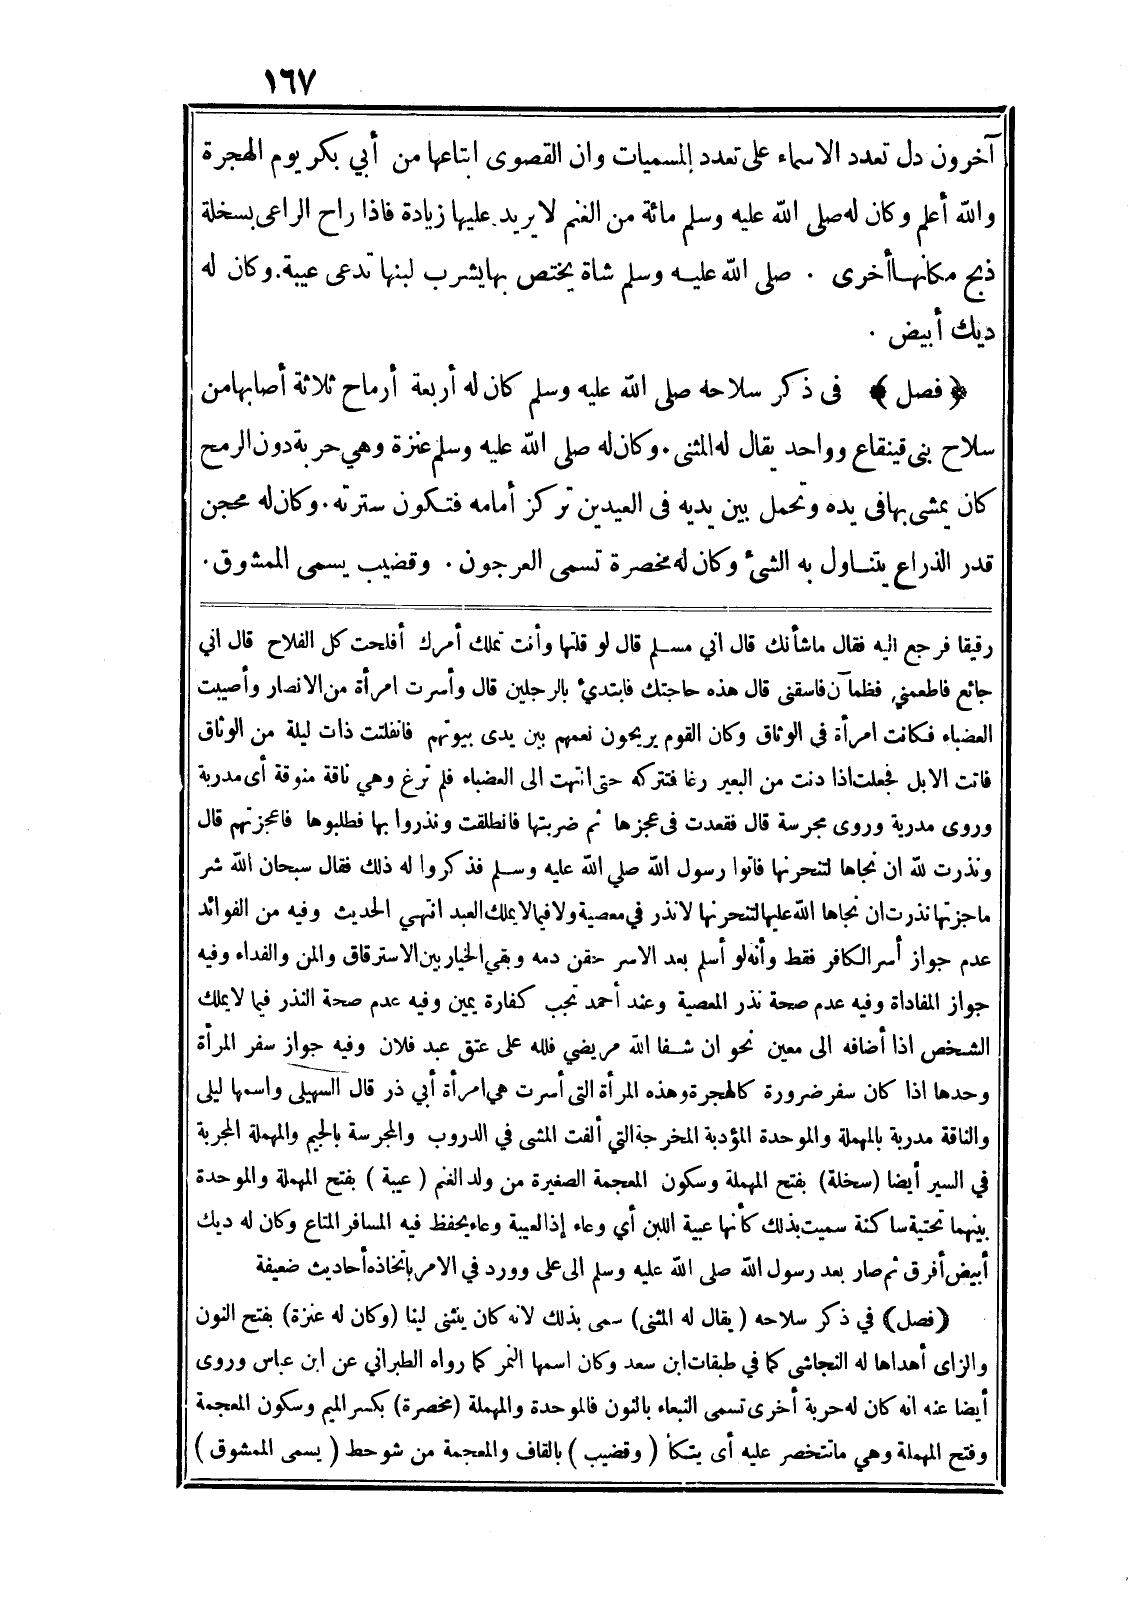 ١٦٧
آخرون دل تعدد الاسماء على تعدد المسميات وان القصوى ابتاعها من أبي بكر يوم الهجرة
والله أعلم وكان له صلى الله عليه وسلم مائة من الغنم لا يريد عليها زيادة فاذا راح الراعى بسخلة
ذبح مكانها أخرى . صلى الله عليه وسلم شاة يختص بها يشرب لبنها تدعى عيبة . وكان له
ديك أبيض .
﴿ فصل ﴾ فى ذكر سلاحه صلى الله عليه وسلم كان له أربعة أرماح ثلاثة أصابها من
سلاح بنى قينقاع وواحد يقال له المثنى . وكان له صلى الله عليه وسلم عنزة وهي حربة دون الرمح
كان يمشى بها فى يده وتحمل بين يديه فى العيدين تركز أمامه فتكون سترته . وكان له محجن
قدر الذراع يتناول به الشئ وكان له مخصرة تسمى العرجون . وقضيب يسمى الممشوق .
رقيقا فرجع اليه فقال ما شأنك قال اني مسلم قال لو قلتها وأنت تملك أمرك أفلحت كل الفلاح قال اني
جائع فاطعمني وظمآن فاسقنى قال هذه حاجتك فابتدئ بالرجلين قال وأسرت امرأة من الانصار وأصيبت
العضباء فكانت امرأة في الوثاق وكان القوم يريحون نعمهم بين يدى بيوتهم فانفلتت ذات ليلة من الوثاق
فاتت الابل فجعلت اذا دنت من البعير رغا فتتركه حتى انتهت الى العضباء فلم ترغ وهي ناقة منوقة أى مدربة
وروى مدربة وروى مجرسة قال فقعدت فى عجزها ثم ضربتها فانطلقت ونذروا بها فطلبوها فاعجزتهم قال
ونذرت لله ان نجاها لتنحرنها فاتوا رسول الله صلي الله عليه وسلم فذكروا له ذلك فقال سبحان الله شر
ما جزتها نذرت ان نجاها الله عليها لتنحرنها لا نذر في معصية ولا فيما لا يملك العبد انتهي الحديث وفيه من الفوائد
عدم جواز أسر الكافر فقط وأنه لو أسلم بعد الاسر حقن دمه وبقي الخيار بين الاسترقاق والمن والفداء وفيه
جواز المفاداة وفيه عدم صحة نذر المعصية وعند أحمد تجب كفارة يمين وفيه عدم صحة النذر فيما لا يملك
الشخص اذا أضافه الى معين نحو ان شفا الله مريضي فلله على عتق عبد فلان وفيه جواز سفر المرأة
وحدها اذا كان سفر ضرورة كالهجرة وهذه المرأة التى أسرت هي امرأة أبي ذر قال السهيلى واسمها ليلى
والناقة مدربة بالمهملة والموحدة المؤدبة المخرجة التي ألفت المشى في الدروب والمجرسة بالجيم والمهملة المجربة
في السير أيضا (سخلة) بفتح المهملة وسكون المعجمة الصغيرة من ولد الغنم ( عيبة ) بفتح المهملة والموحدة
بينهما تحتية ساكنة سميت بذلك كأنها عيبة اللبن أي وعاء إذ العيبة وعاء يحفظ فيه المسافر المتاع وكان له ديك
أبيض أفرق ثم صار بعد رسول الله صلى الله عليه وسلم الى على وورد في الامر باتخاذه أحاديث ضعيفة
﴿فصل﴾ في ذكر سلاحه ( يقال له المثنى) سمى بذلك لانه كان ينثنى لينا (وكان له عنزة) بفتح النون
والزاى أهداها له النجاشى كما في طبقات ابن سعد وكان اسمها النمر كما رواه الطبراني عن ابن عباس وروى
أيضا عنه انه كان له حربة أخرى تسمى النبعاء بالنون فالموحدة والمهملة (مخصرة) بكسر الميم وسكون المعجمة
وفتح المهملة وهي ما تتخصر عليه أى يتكأ ( وقضيب ) بالقاف والمعجمة من شوحط ( يسمى الممشوق )